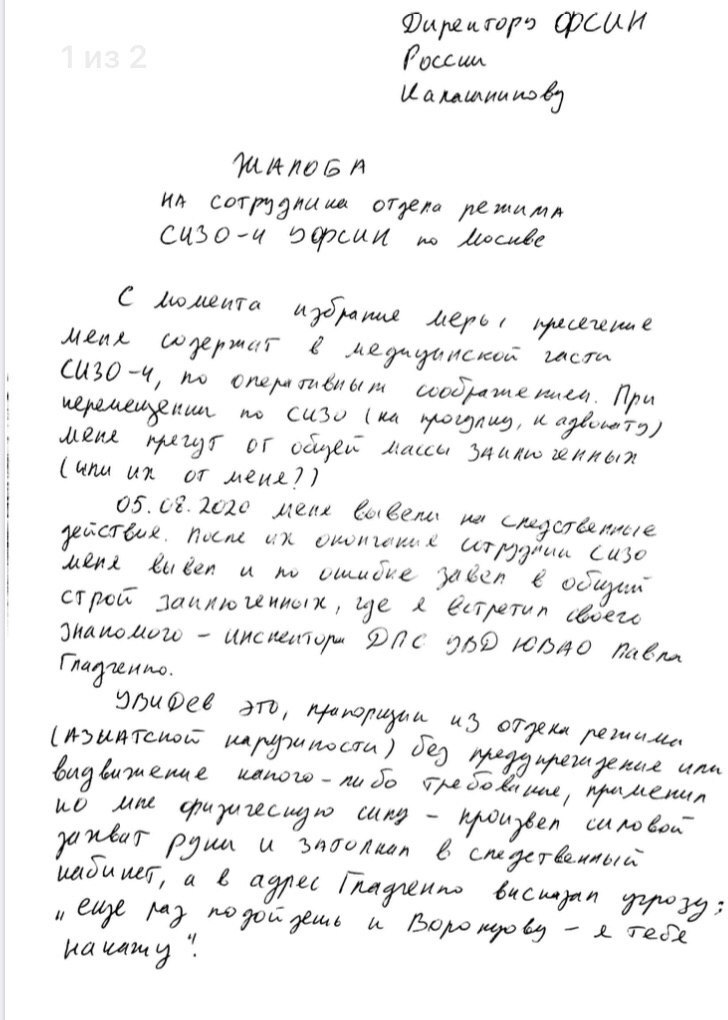 1 из 2
Директору ФСИН
России
Калашникову
ЖАЛОБА
на сотрудника отдела режима
СИЗО-4 УФСИН по Москве
С момента избрание меры пресечение
меня содержат в медицинской части
СИЗО-4, по оперативным соображением. При
перемещении по СИЗО (на прогулку, к адвокату)
меня прячут от общей массы заключенных
(или их от меня??)
05.08.2020 меня вывели на следственные
действие. После их окончание сотрудник СИЗО
меня вывел и по ошибке завел в общий
строй заключенных, где я встретил своего
знакомого – инспектора ДПС УВД ЮВАО Павла
Гладченко.
Увидев это, прапорщик из отдела режима
(азиатской наружности) без предупреждение или
видвижение какого-либо требование, применил
ко мне физическую силу – произвел силовой
захват руки и затолкал в следственный
кабинет, а в адрес Гладченко висказал угрозу:
„еще раз подойдешь к Воронцову – я тебя
накажу“.